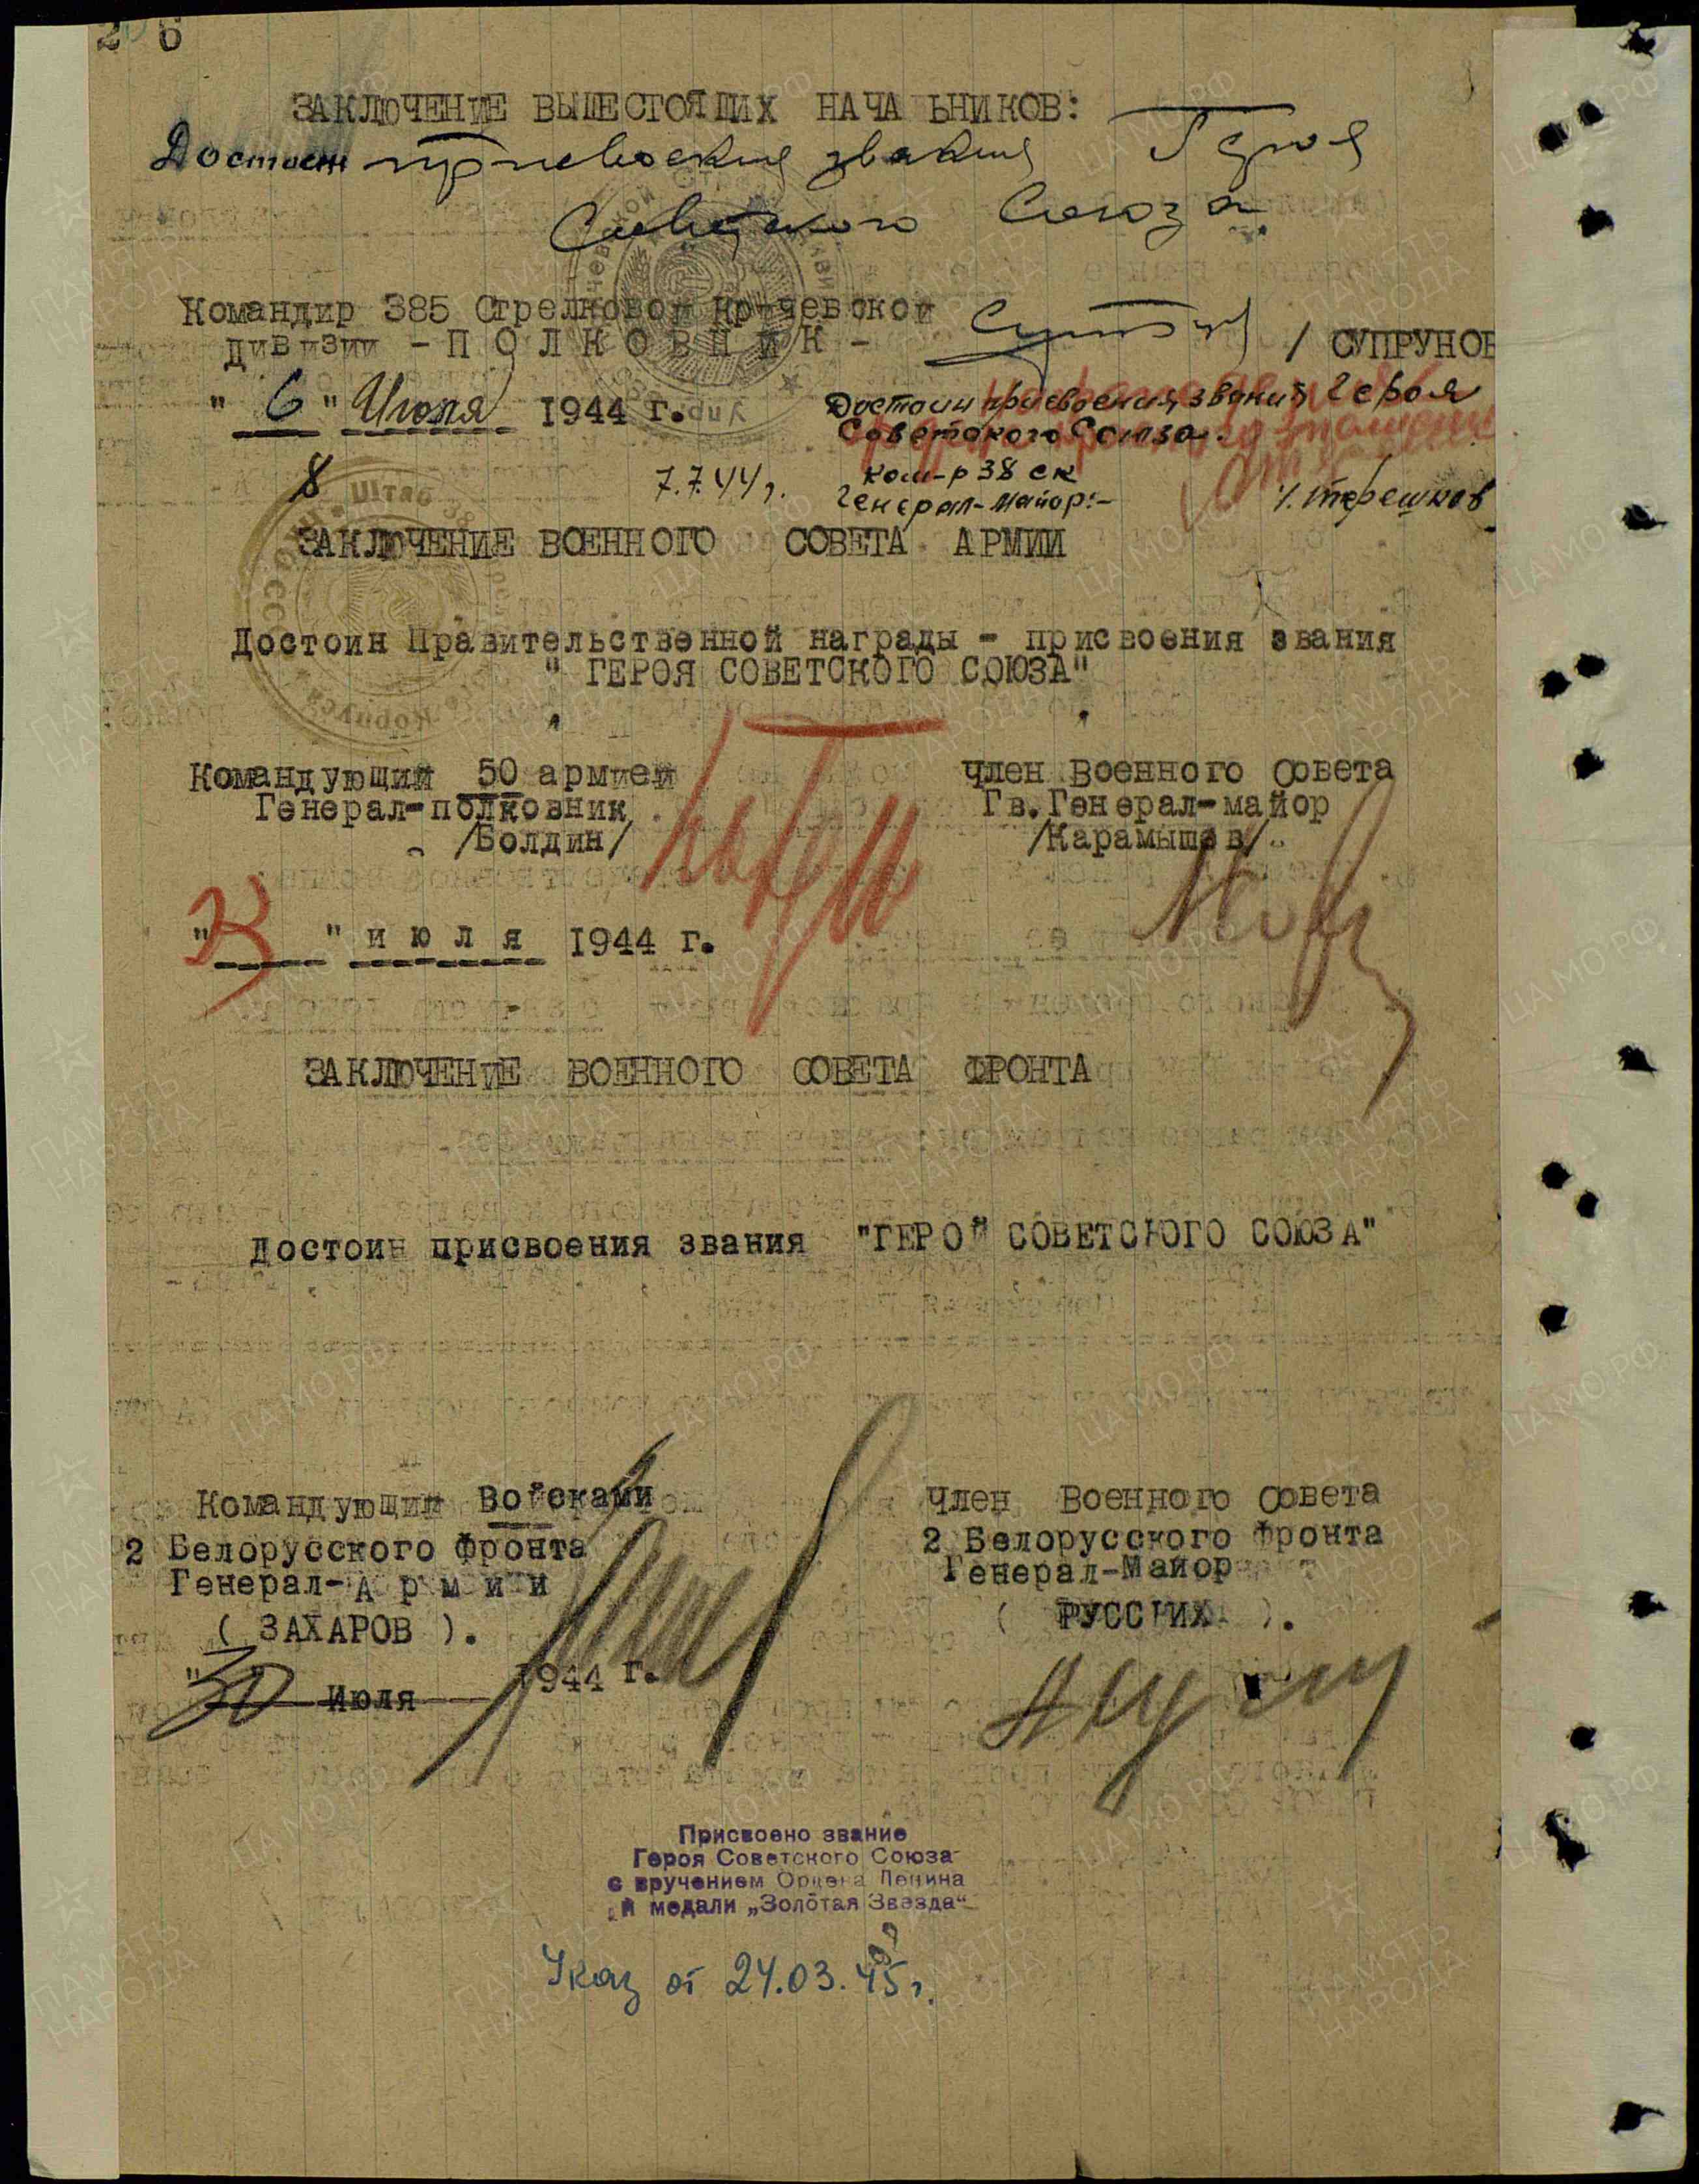 206
ЗАКЛЮЧЕНИЕ ВЫШЕСТОЯЩИХ НАЧА ЬНИКОВ:
Достоин присвоения звания Героя
Советского Союза.
Командир 385 Стрелковой Кричевской
дивизии - ПОЛКОВНИК - / СУПРУНОВ
" 6 " Июля 1944 г.
Достоин присвоения звания Героя
Советского Союза.
7.7.44 г. ком-р 38 ск
Генерал-майор:- /. Терешков
ЗАКЛЮЧЕНИЕ ВОЕННОГО СОВЕТА АРМИИ
Достоин Правительственной награды - присвоения звания
" ГЕРОЯ СОВЕТСКОГО СОЮЗА"
Командующий 50 армией
Генерал-полковник
/Болдин/
Член Военного Совета
Гв.Генерал-майор
/Карамышев/
" " июля 1944 г.
ЗАКЛЮЧЕНИЕ ВОЕННОГО СОВЕТА ФРОНТА
Достоин присвоения звания "ГЕРОЙ СОВЕТСКОГО СОЮЗА"
Командующий Войсками
2 Белорусского фронта
Генерал-Армии
( ЗАХАРОВ ).
"30" Июля 1944 г.
Член Военного Совета
2 Белорусского Фронта
Генерал-Майор
( РУССКИХ ).
Присвоено звание
Героя Советского Союза
с вручением Ордена Ленина
и медали „Золотая Звезда“
Указ от 24.03.45 г.
ПАМЯТЬ НАРОДА
ЦА МО РФ